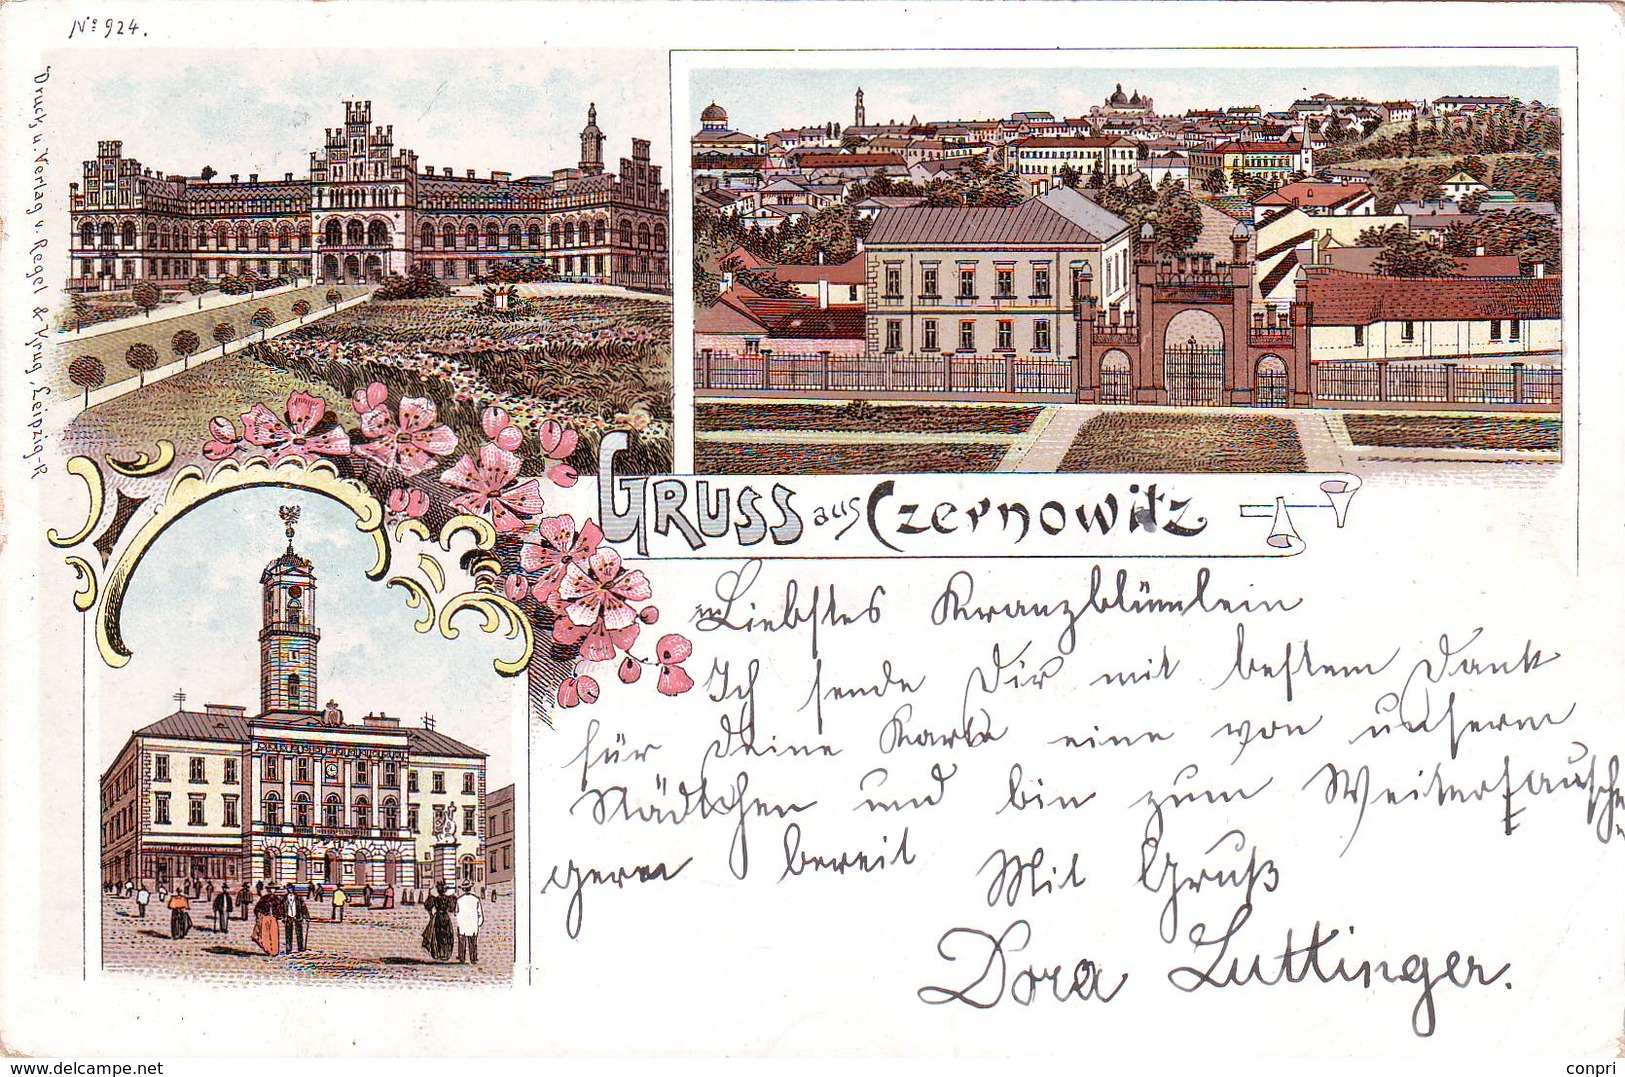 No 924.
Druck u. Verlag v. Regel & Krug, Leipzig-R
GRUSS aus Czernowitz
Liebstes Kranzblümlein
Ich sende Dir mit bestem Dank
für Deine Karte eine von unserm
Städtchen und bin zum Weitertausche
gern bereit Mit Gruß
Dora Luttinger.
delcampe.net
conpri